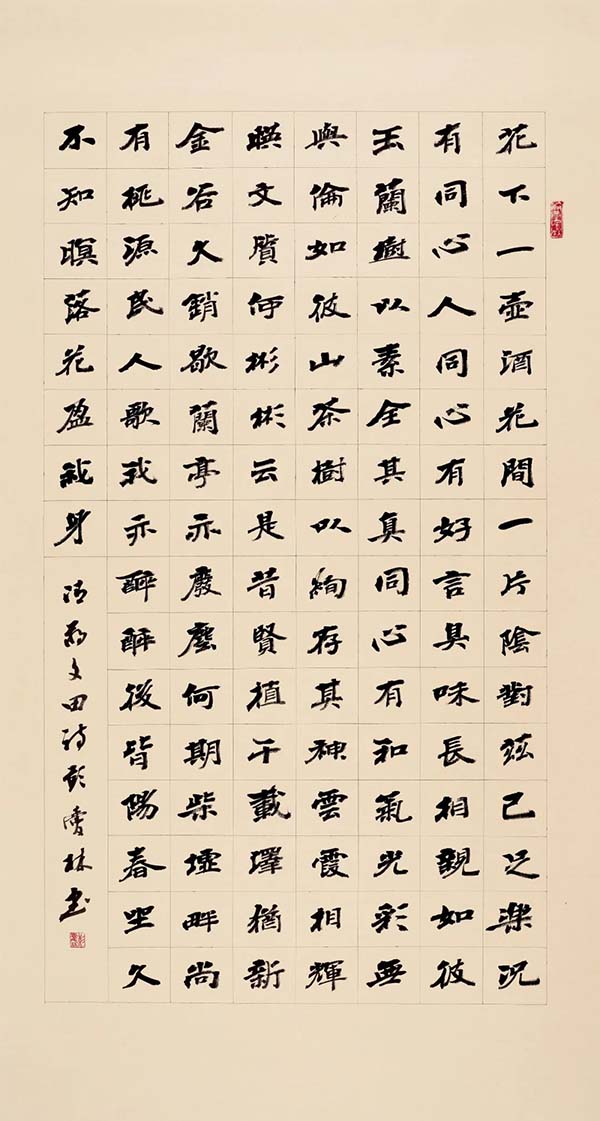 花下一壺酒花間一片陰對茲已足樂況
有同心人同心有好言臭味長相親如彼
玉蘭樹以素全其真同心有和氣光彩無
與倫如彼山茶樹以絢存其神雲霞相輝
暎文質何彬彬云是昔賢植千載澤猶新
金谷久銷歇蘭亭亦廢塵何期柴墟畔尚
有桃源民人歌我亦醉醉後皆陽春坐久
不知暝落花盈我身
清蔣文田詩彭林書